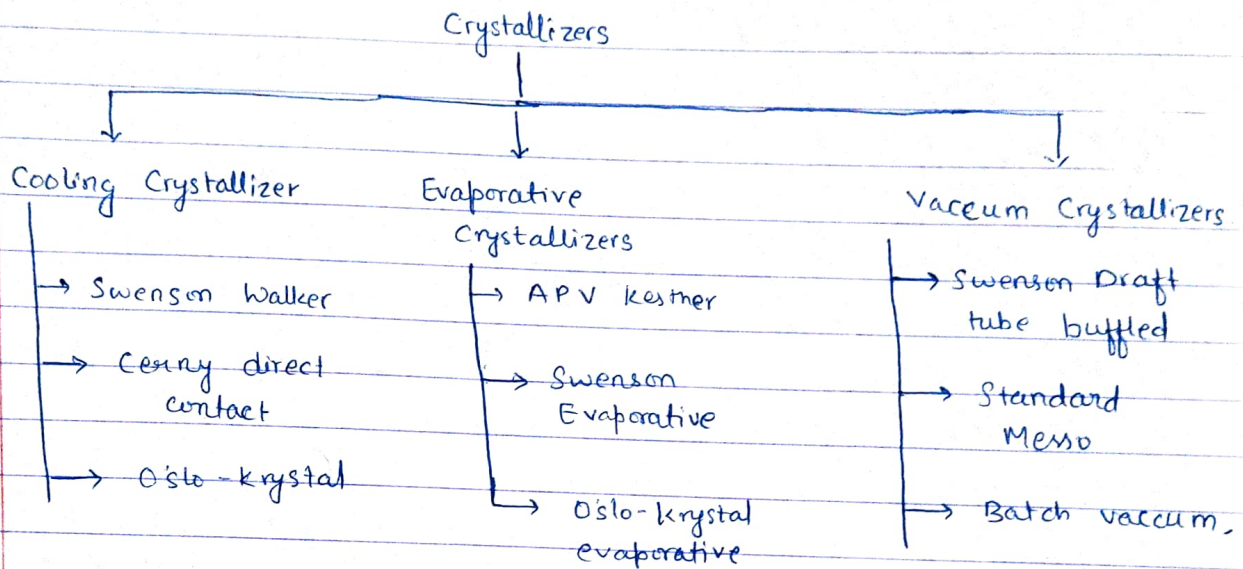 Crystallizers
Cooling Crystallizer
Swenson Walker
Cerny direct
contact
O'slo-krystal
Evaporative
Crystallizers
APV kestner
Swenson
Evaporative
O'slo-krystal
evaporative
Vaccum Crystallizers
Swenson Draft
tube buffled
Standard
Messo
Batch vaccum.